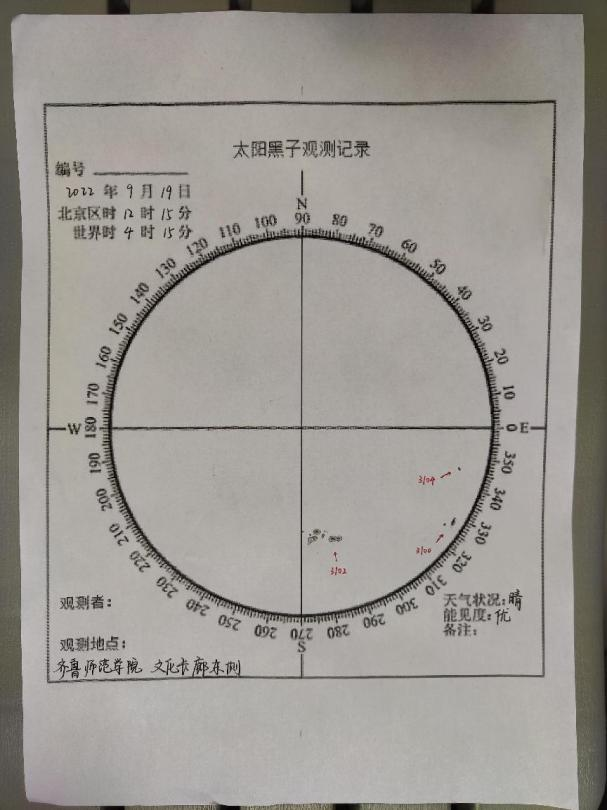 太阳黑子观测记录
编号
2022 年 9 月 19 日
北京区时 12 时 15 分
世界时 4 时 15 分
N
90
80
70
60
50
40
30
20
10
0 E
350
340
330
320
310
300
290
280
270
S
260
250
240
230
220
210
200
190
W 180
170
160
150
140
130
120
110
100
3104
3100
3102
观测者：
观测地点：
齐鲁师范学院 文化长廊东侧
天气状况：晴
能见度：优
备注：